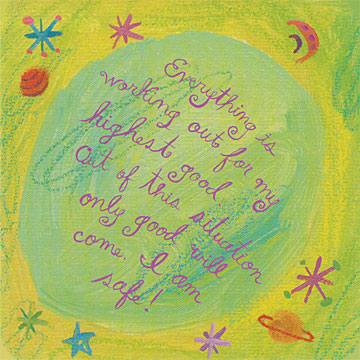 Everything is
working out for my
highest good
Out of this situation
only good will
come. I am
safe!